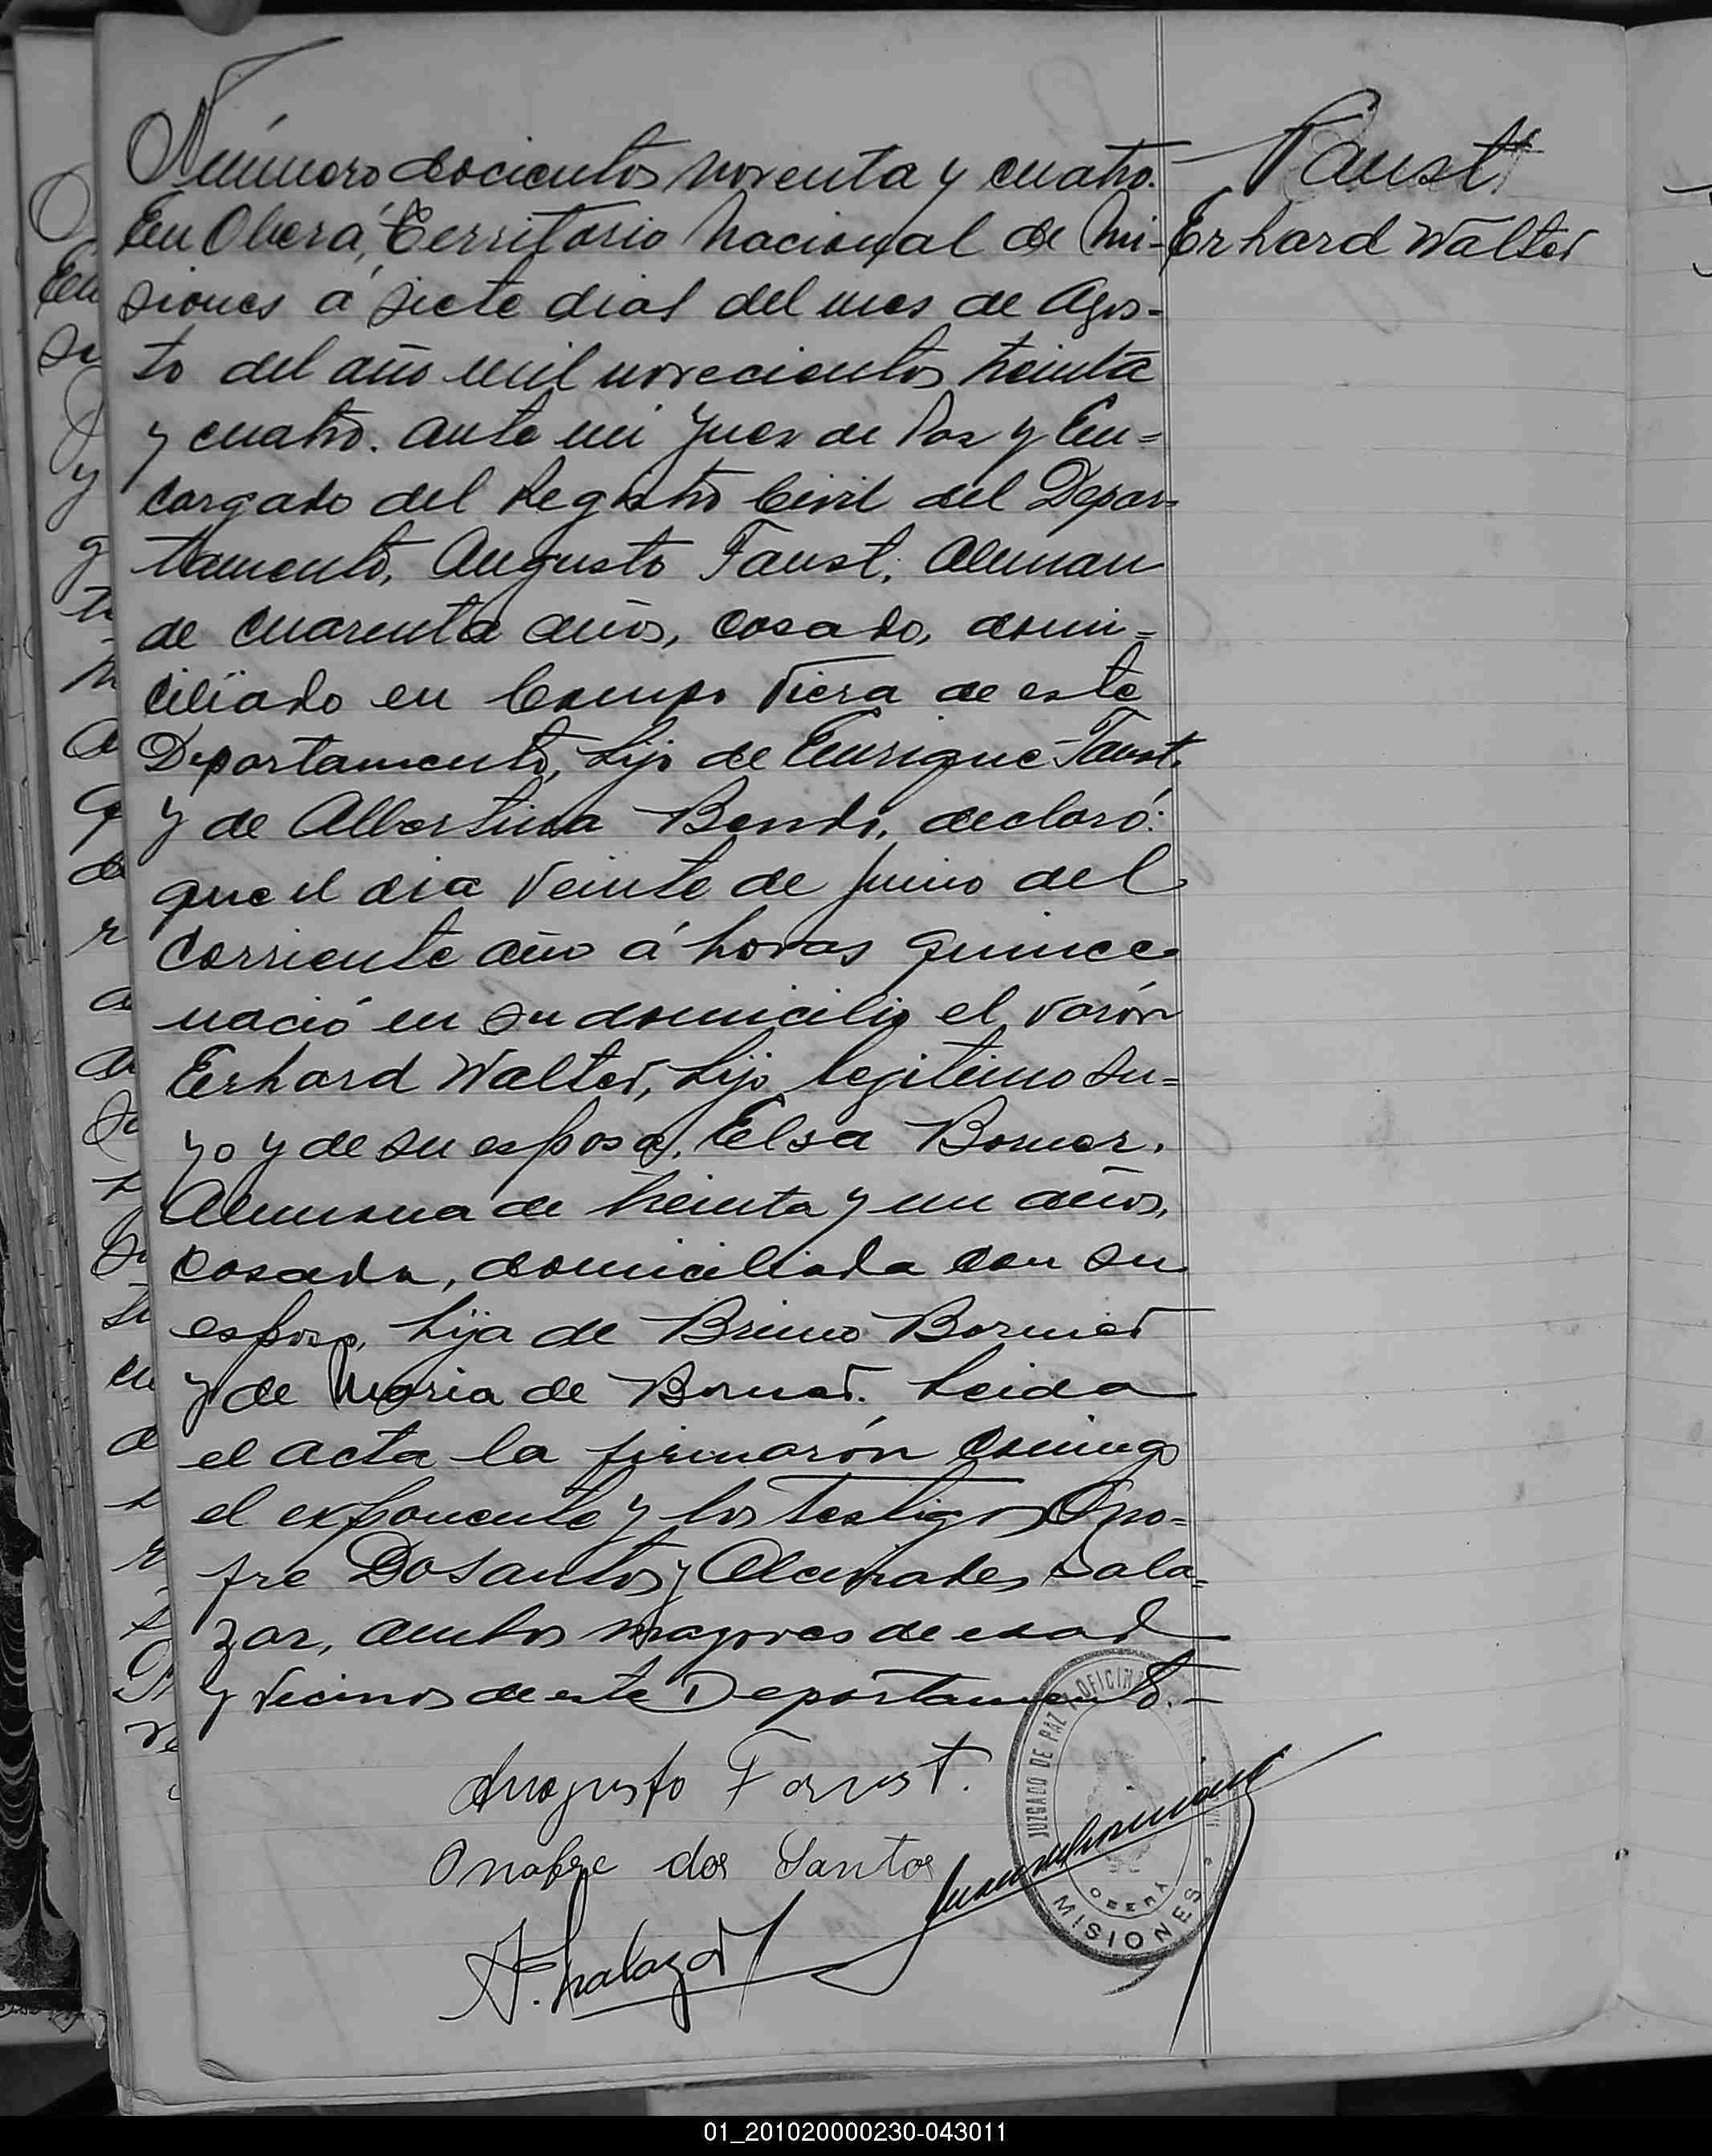 Número docientos noventa y cuatro.
Faust
En Oberá, Territorio Nacional de Mi-
Erhard Walter
siones á siete dias del mes de Agos-
to del año mil novecientos treinta
y cuatro. ante mi Juez de Paz y En=
cargado del Registro Civil del Depar=
tamento, Augusto Faust, Aleman
de cuarenta años, casado, domi=
ciliado en Campo Viera de este
Departamento, hijo de Enrique Faust.
y de Albertina , declaró:
que el dia veinte de Junio del
corriente año á horas quince
nació en su domicilio el varón
Erhard Walter, hijo legitimo su=
yo y de su esposa, Elsa Borner.
Alemana de treinta y un años,
casada, domiciliada con su
esposo, hija de Bruno Borner
y de Maria de Borner. Leida
el acta la firmarón conmigo
el exponente y los testigos Ono=
fre DoSantos y Alcivades Sala=
zar, ambos mayores de edad
y vecinos de este Departamento.-
Augusto Faust.
Onofre dos Santos
A. Salazar
JUZGADO DE PAZ Y OFICINA
OBERÁ
MISIONES
01_201020000230-043011